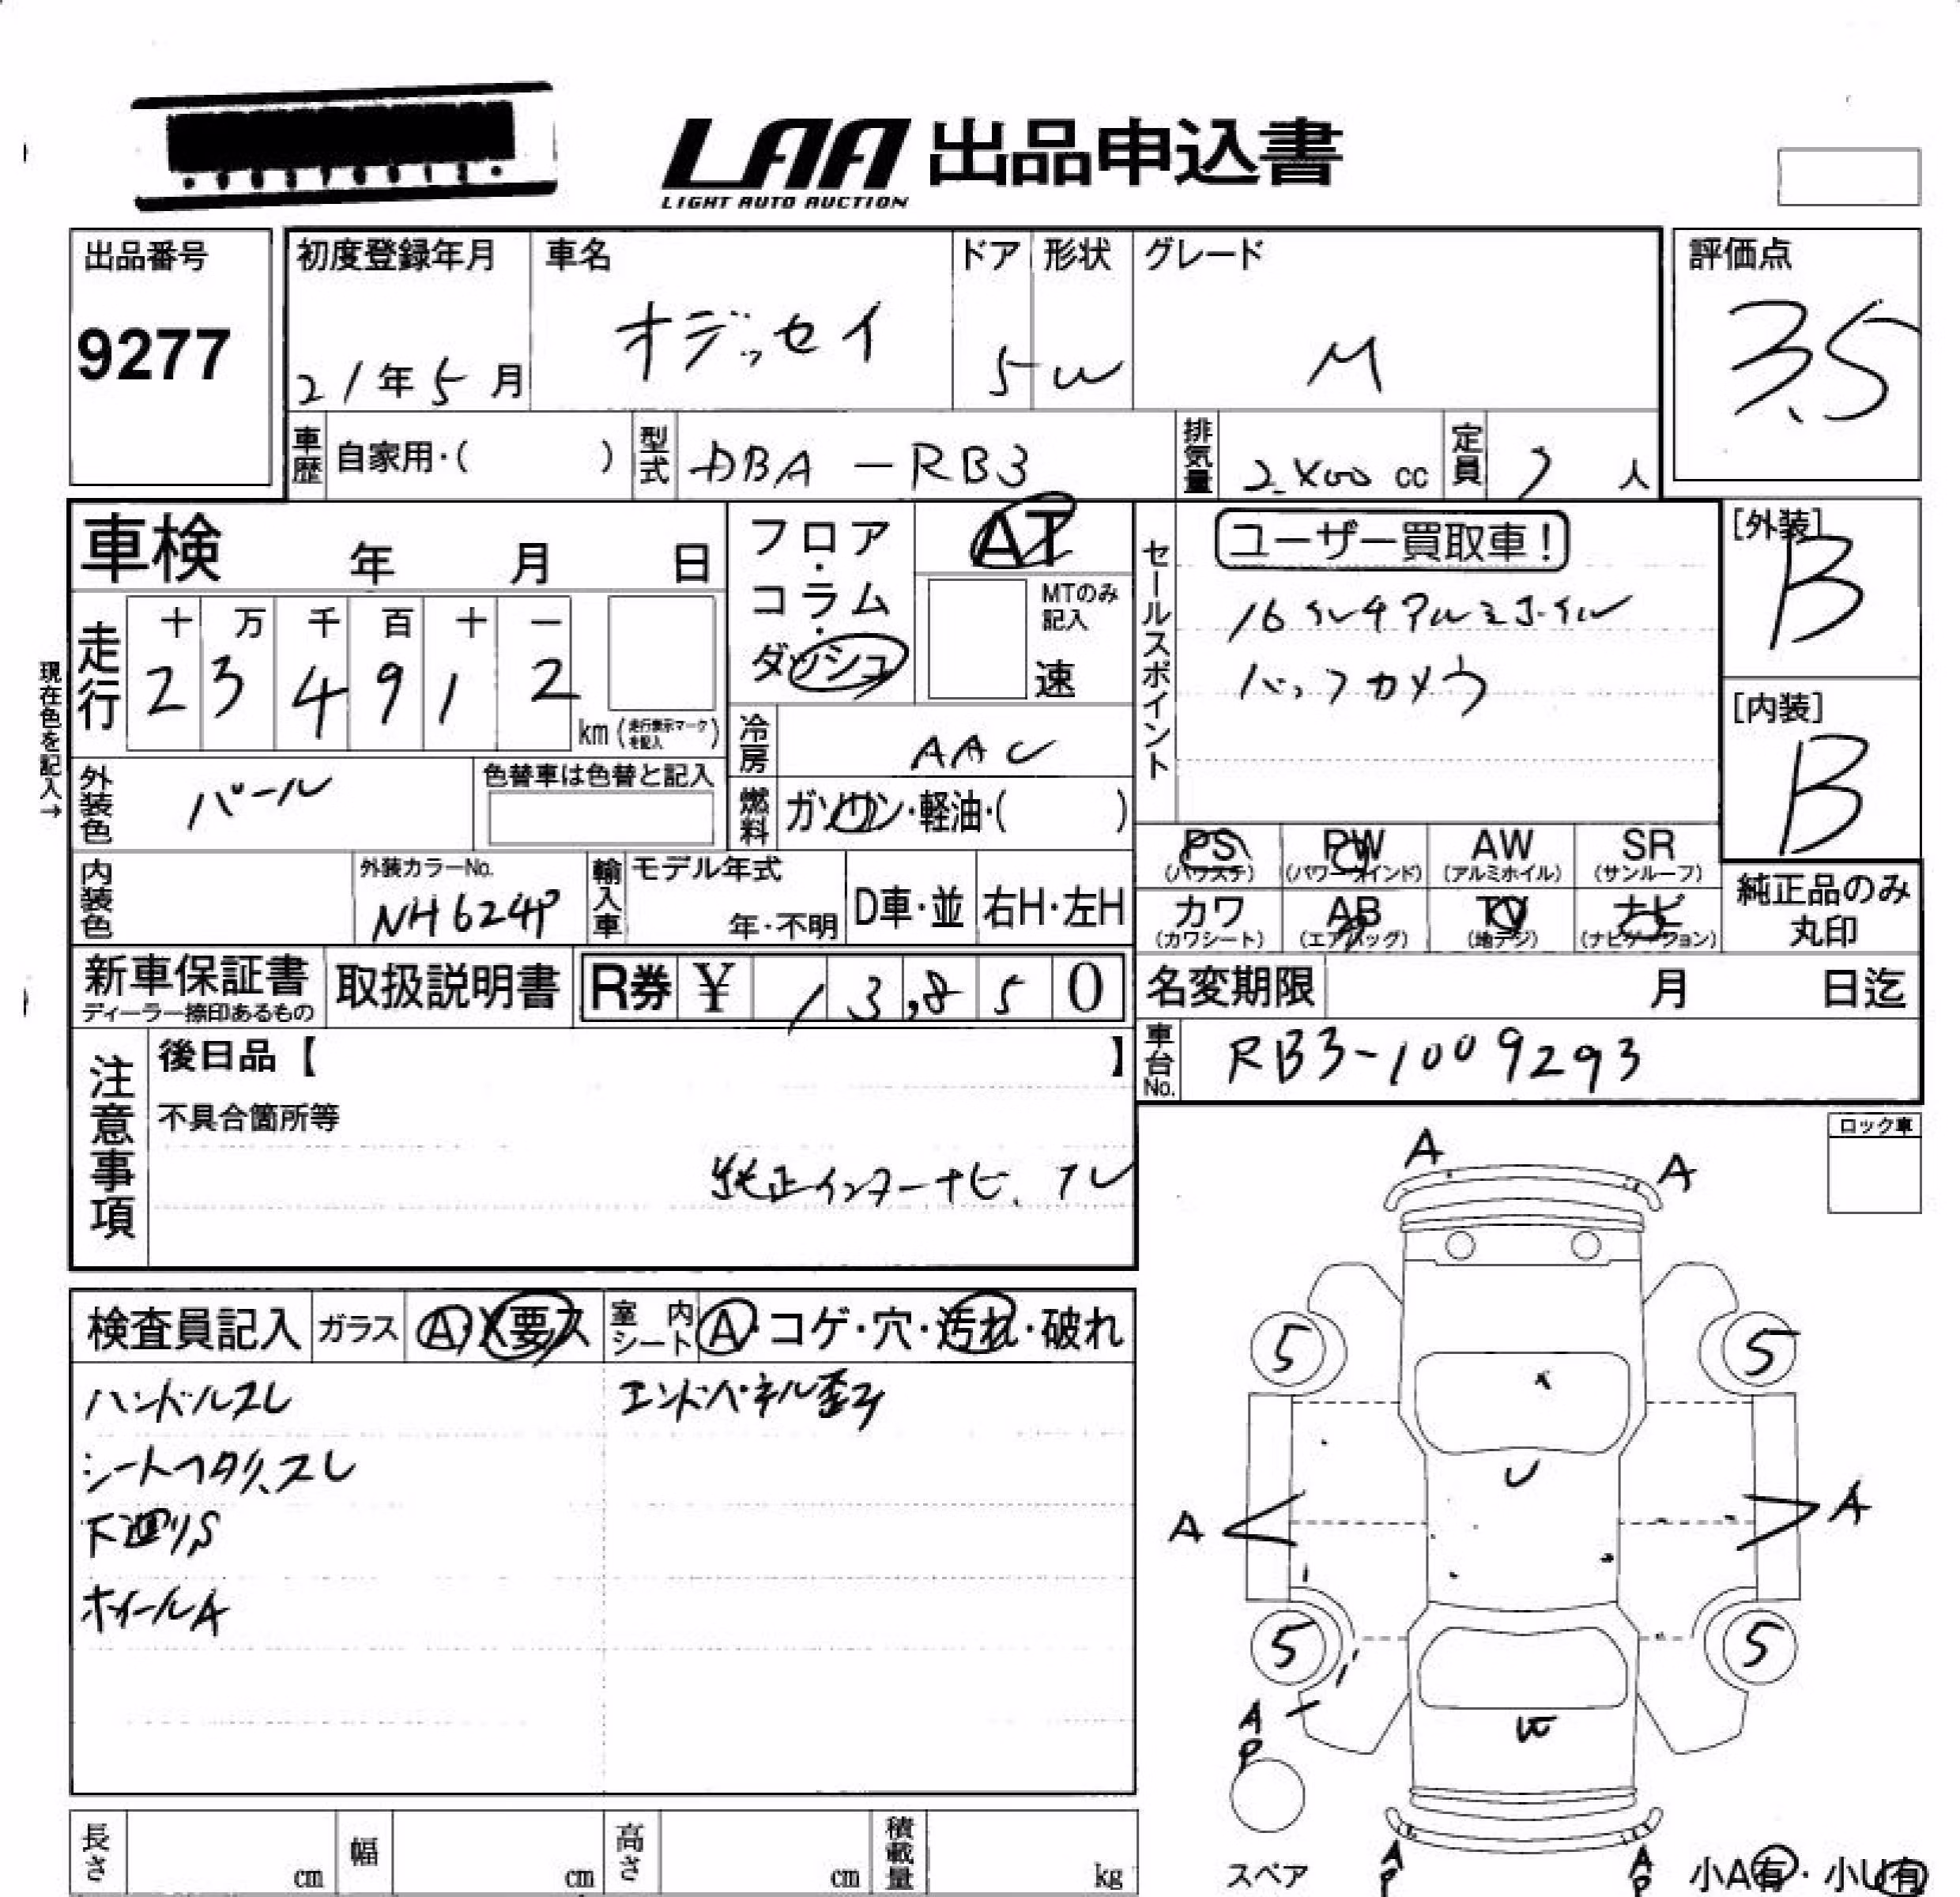 LAA 出品申込書
LIGHT AUTO AUCTION
出品番号
9277
初度登録年月
21年5月
車名
オデッセイ
ドア
5
形状
W
グレード
M
評価点
3.5
車歴 自家用・( )
型式 DBA-RB3
排気量 2400 cc
定員 7 人
車検 年 月 日
フロア・コラム・ダッシュ
AT
MTのみ記入
速
セールスポイント
ユーザー買取車!
16インチアルミホイル
バックカメラ
[外装]
B
[内装]
B
現在色を記入→
走行
十 万 千 百 十 一
2 3 4 9 1 2
km (走行表示マークを記入)
冷房 AAC
外装色 パール
色替車は色替と記入
燃料 ガソリン・軽油・( )
内装色
外装カラーNo.
NH624P
輸入車
モデル年式
年・不明
D車・並
右H・左H
PS (パワステ)
PW (パワーウインド)
AW (アルミホイル)
SR (サンルーフ)
カワ (カワシート)
AB (エアバッグ)
TV (地デジ)
ナビ (ナビゲーション)
純正品のみ丸印
新車保証書
ディーラー捺印あるもの
取扱説明書
R券 ¥ 13,850
名変期限 月 日迄
車台No. RB3-1009293
注意事項
後日品【 】
不具合箇所等
純正インターナビ、
ロック車
検査員記入
ガラス A・X要ス
室内シート A・コゲ・穴・汚れ・破れ
ハンドルスレ
エンドパネル歪み
シートヘタリ、スレ
下廻りS
ホイールA
A
A
5
5
U
A
A
5
5
A
P
A
P
A
P
スペア
小A有・小U有
長さ cm
幅 cm
高さ cm
積載量 kg